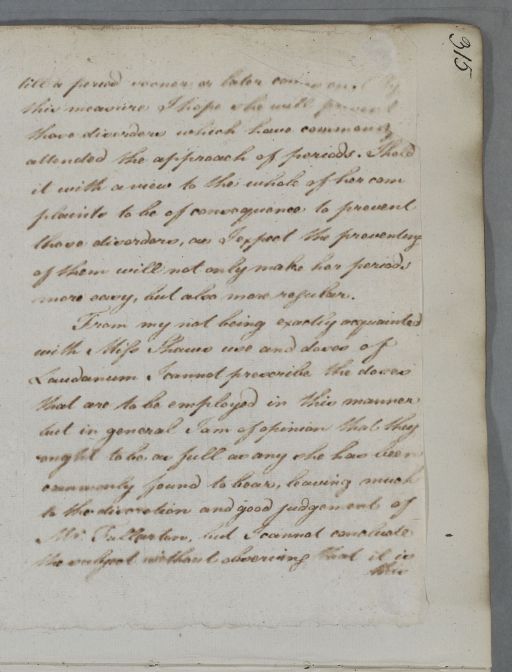 315
till a period sooner or later
this measure I hope she will prevent
those disorders which have commonly
attended the approach of periods. I hold
it with a view to the whole of her com
plaints to be of consequence to prevent
those disorders, as I expect the preventing
of them will not only make her periods
more easy, but also more regular.
From my not being exactly acquainted
with Miss Shaws use and doses of
Laudanum I cannot prescribe the doses
that are to be employed in this manner
but in general I am of opinion that they
ought to be as full as any she has been
commonly found to bear, leaving much
to the discretion and good judgement of
Mr. Fullarton, but I cannot conclude
the subject without observing that it is
this